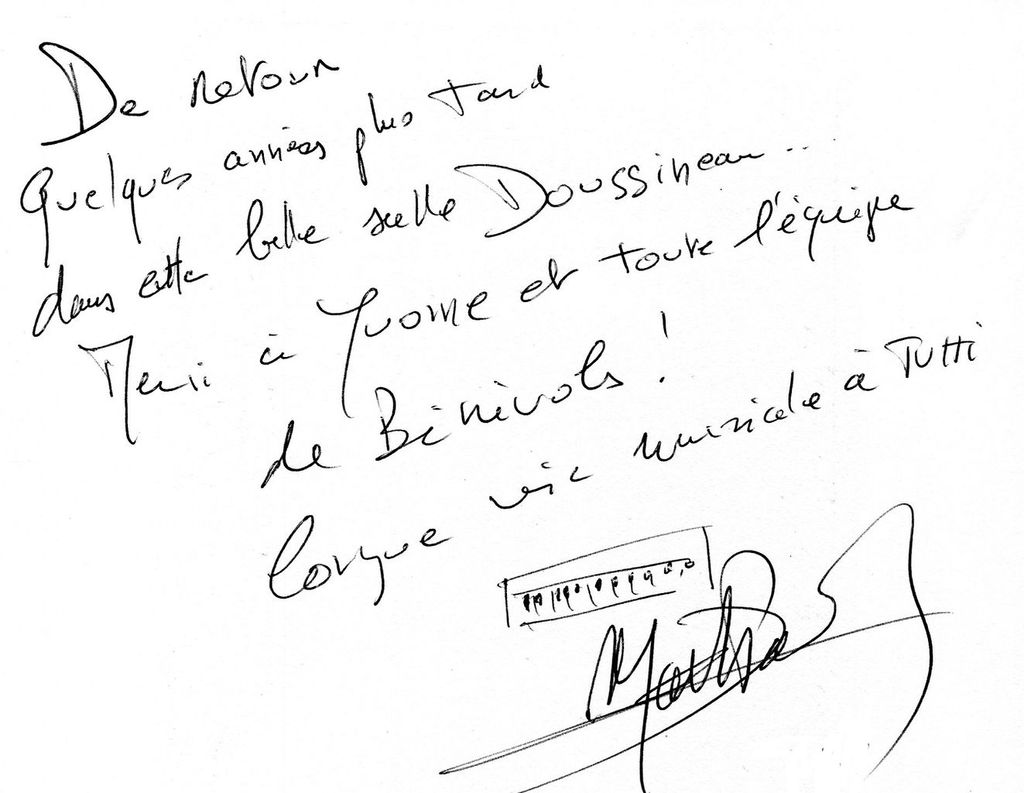 De retour
Quelques années plus tard
dans cette belle salle Doussineau...
Merci à Yvonne et toute l'équipe
de Bénévols !
longue vie musicale à Tutti